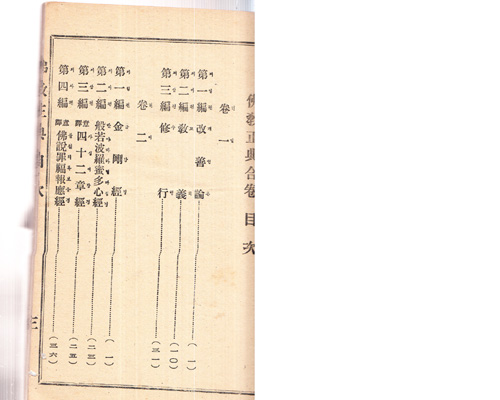 佛敎正典合卷 目次
卷一
第一編 改善論 (一)
第二編 敎義 (一〇)
第三編 修行 (三一)
卷二
第一編 金剛經 (一)
第二編 般若波羅蜜多心經 (二三)
第三編 意譯 四十二章經 (二五)
第四編 意譯 佛說罪福報應經 (三六)
佛敎正典目次 三